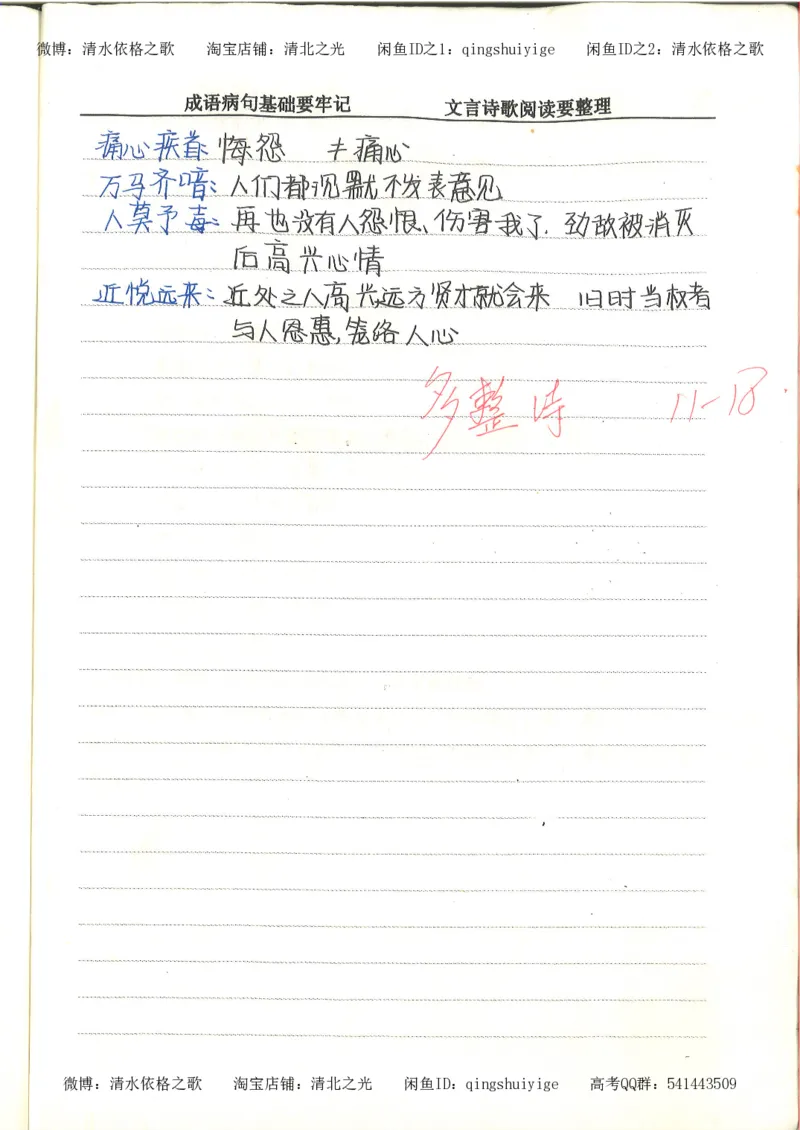 微博：清水依格之歌　淘宝店铺：清北之光　闲鱼ID之1：qingshuiyige　闲鱼ID之2：清水依格之歌
成语病句基础要牢记　文言诗歌阅读要整理
痛心疾首：悔怨　≠痛心
万马齐喑：人们都沉默不发表意见
人莫予毒：再也没有人怨恨、伤害我了．劲敌被消灭
后高兴心情
近悦远来：近处之人高兴远方贤才就会来　旧时当权者
与人恩惠，笼络人心
多整诗　11-18．
微博：清水依格之歌　淘宝店铺：清北之光　闲鱼ID：qingshuiyige　高考QQ群：541443509